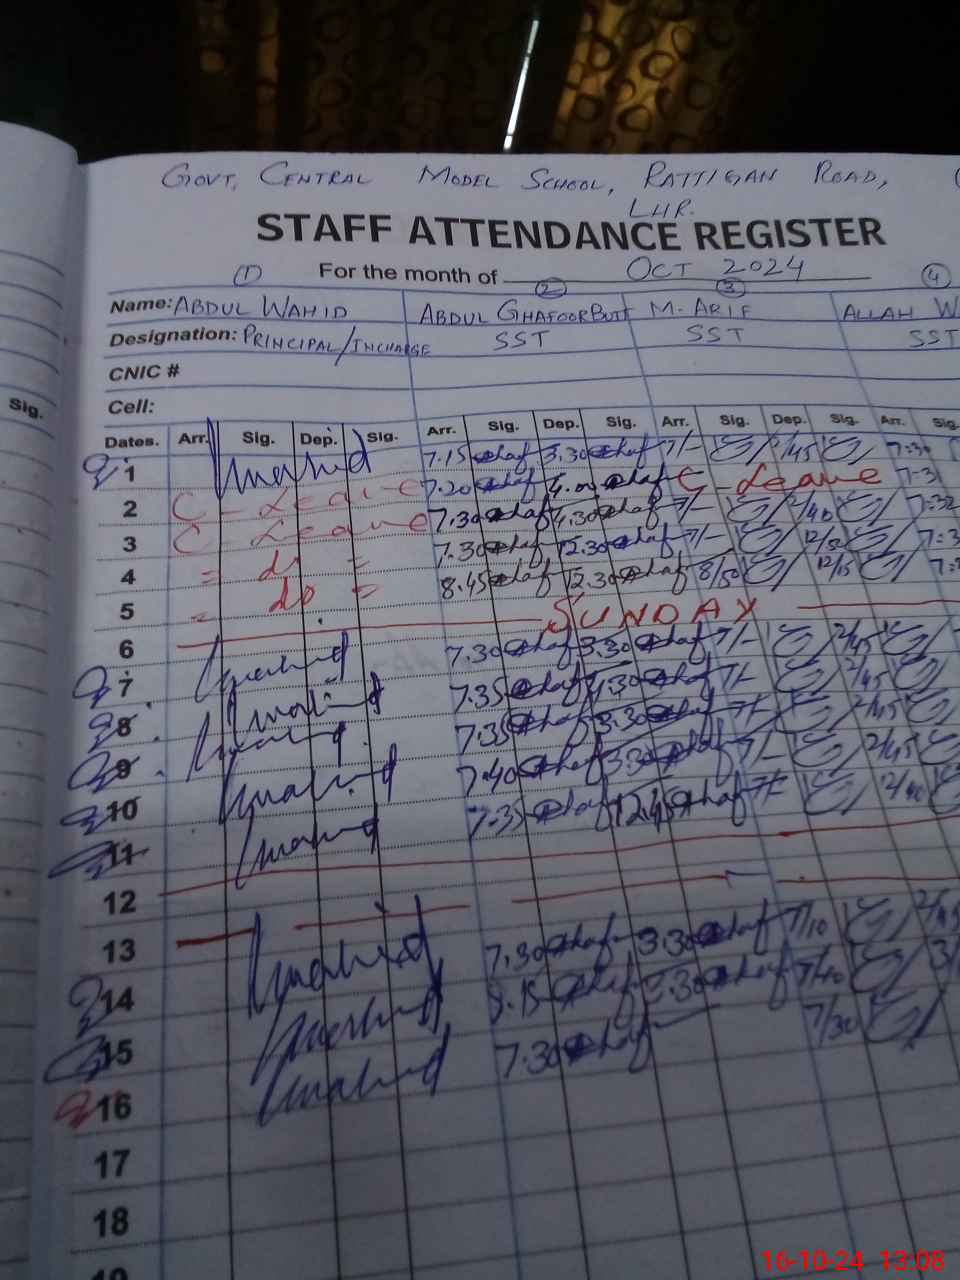 GOVT, CENTRAL MODEL SCHOOL, RATTIGAN ROAD,
LHR.
STAFF ATTENDANCE REGISTER
For the month of OCT 2024
1 2 3 4
Name: ABDUL WAHID ABDUL GHAFOOR BUTT M. ARIF ALLAH W
Designation: PRINCIPAL/INCHARGE SST SST SST
CNIC #
Cell:
Sig.
Dates. Arr. Sig. Dep. Sig. Arr. Sig. Dep. Sig. Arr. Sig. Dep. Sig. Arr. Sig
1 7.15 3.30 7/- 2/45 7:30
2 C-Leave 7.20 4.00 C-Leave 7-3
3 C-Leave 7.30 4.30 7/- 2/40 7:32
4 = do = 7.30 12.30 7/- 12/50 7:3
5 = do = 8.45 12.30 8/50 12/15
6 SUNDAY
7 7.30 3.30 7/- 2/45
8 7.35 4.30 7/- 2/45
9 7.35 3.30 7/- 2/45
10 7.40 3.30 7/- 2/45
11 7.35 12.45 7/- 12/40
12
13
14 7.30 3.30 7/10 2/45
15 8.15 3.30 7/40 3/
16 7.30 7/30
17
18
19
16-10-24 13:08